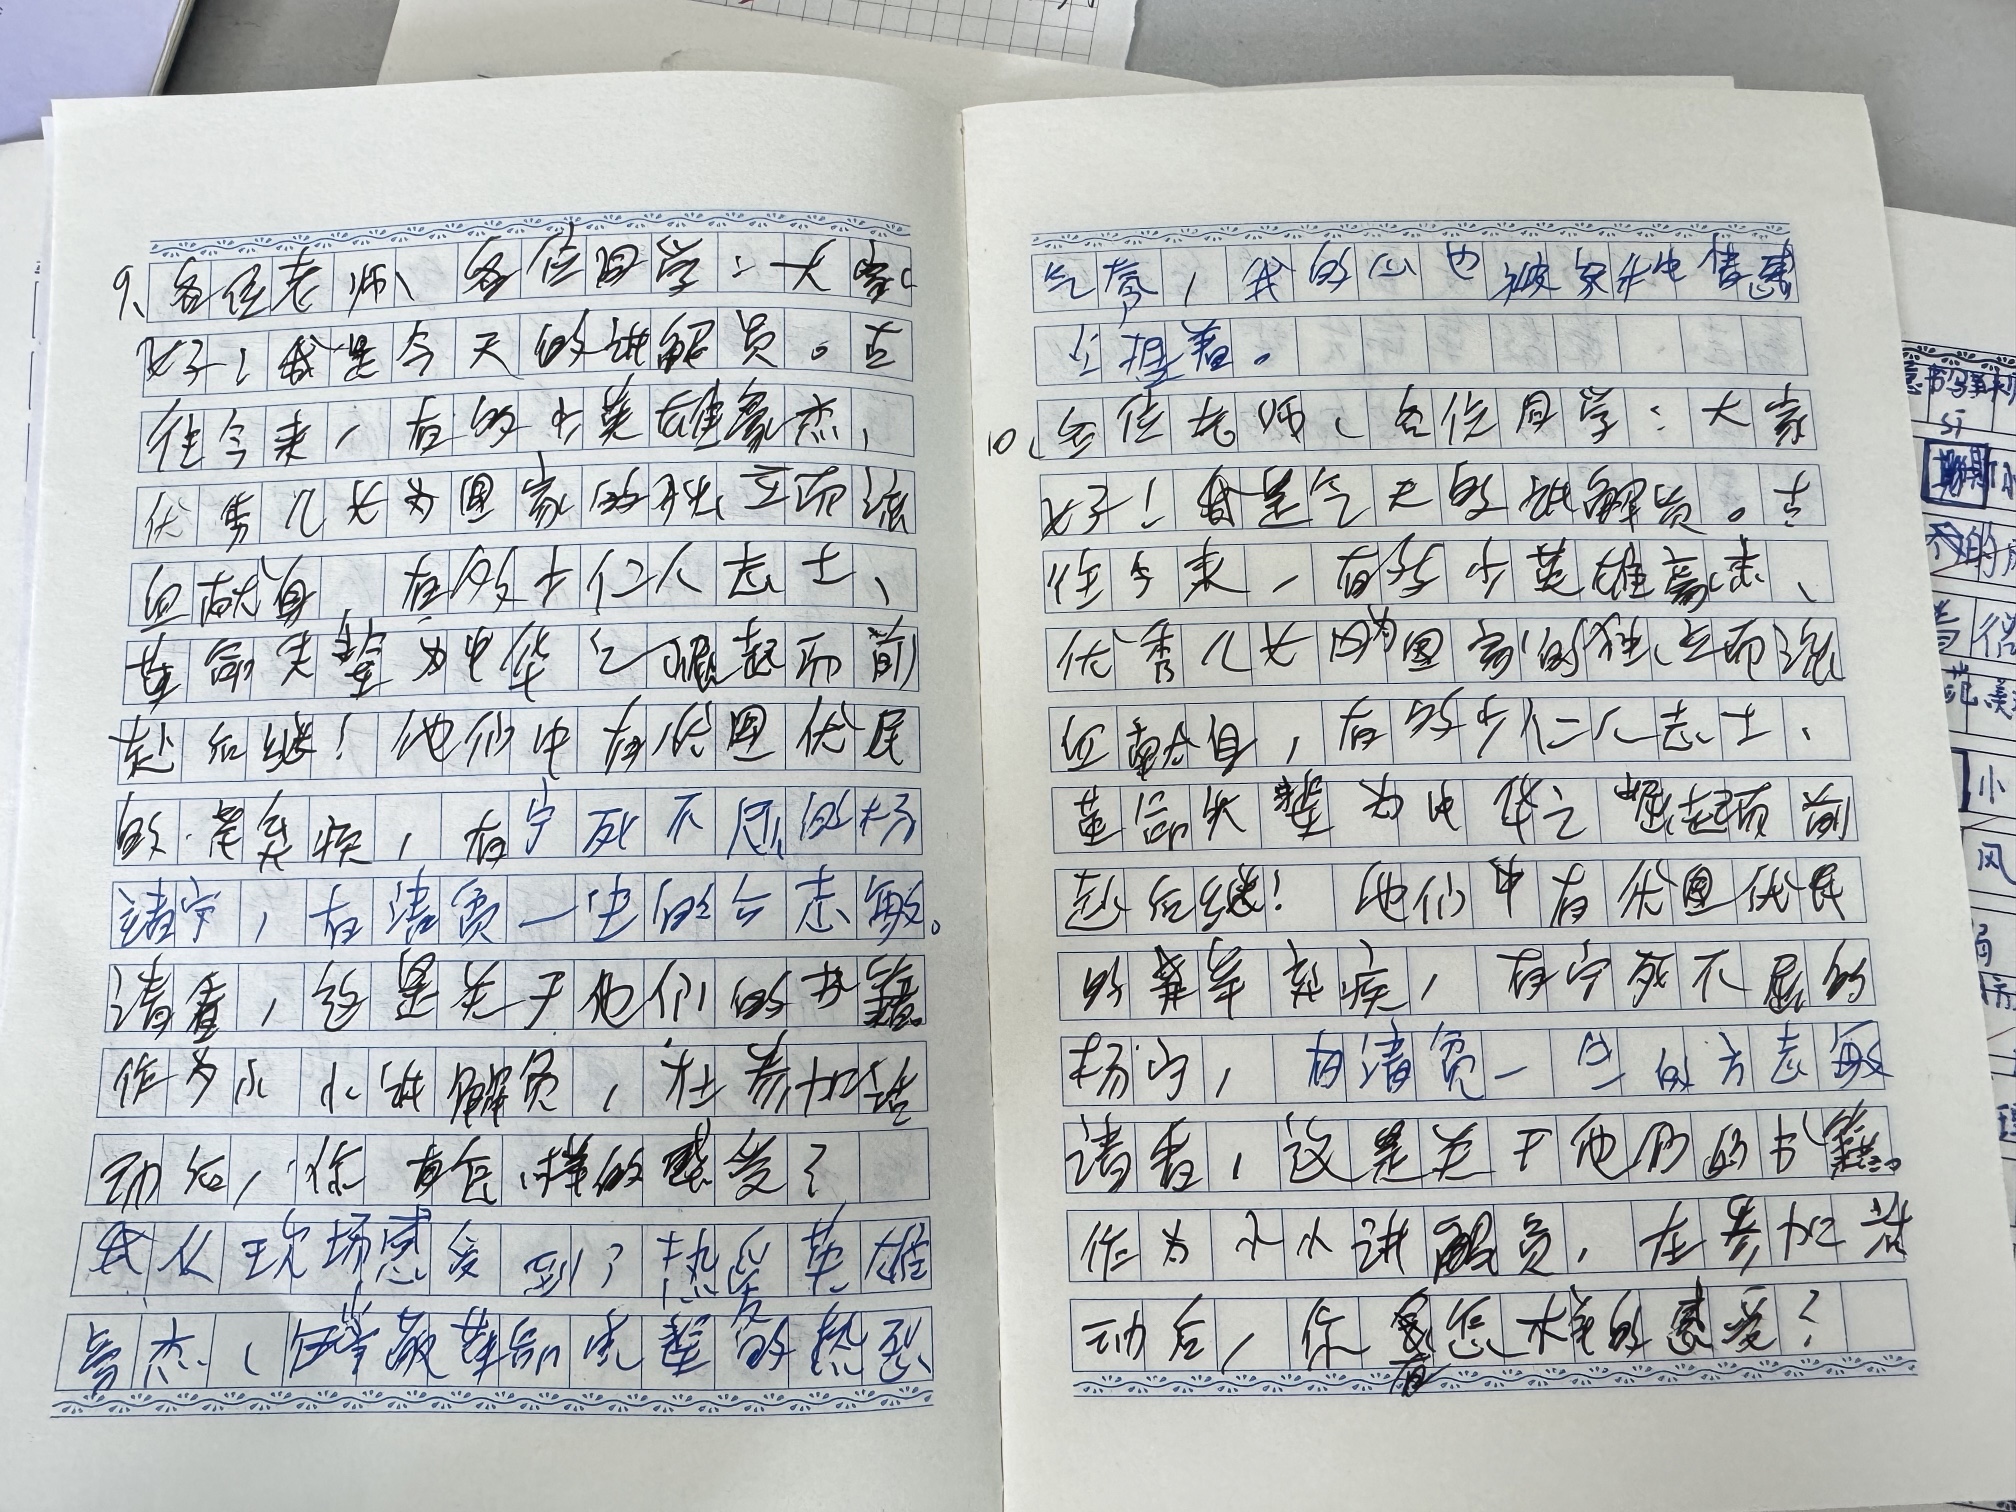 9、各位老师、各位同学：大家
好！我是今天的讲解员。古
往今来，有的少英雄豪杰，
优秀儿女为国家的独立而流
血献身 有多少仁人志士、
革命先辈为中华之崛起而前
赴后继！他们中有忧国忧民
的辛弃疾，有宁死不屈的杨
靖宇，有清贫一生的方志敏。
请看，这是关于他们的书籍。
作为小小讲解员，在参加活
动后，你有怎样的感受？
我从现场感受到了热爱英雄
豪杰、敬革命先辈的热烈
气氛，我的心也被这种情感
牵着。
10、各位老师、各位同学：大家
好！我是今天的讲解员。古
往今来，有多少英雄豪杰、
优秀儿女为国家的独立而流
血献身，有多少仁人志士、
革命先辈为中华之崛起而前
赴后继！他们中有忧国忧民
的辛弃疾，有宁死不屈的
杨宇，有清贫一生的方志敏
请看，这是关于他们的书籍。
作为小小讲解员，在参加活
动后，你有怎样的感受？
小
风